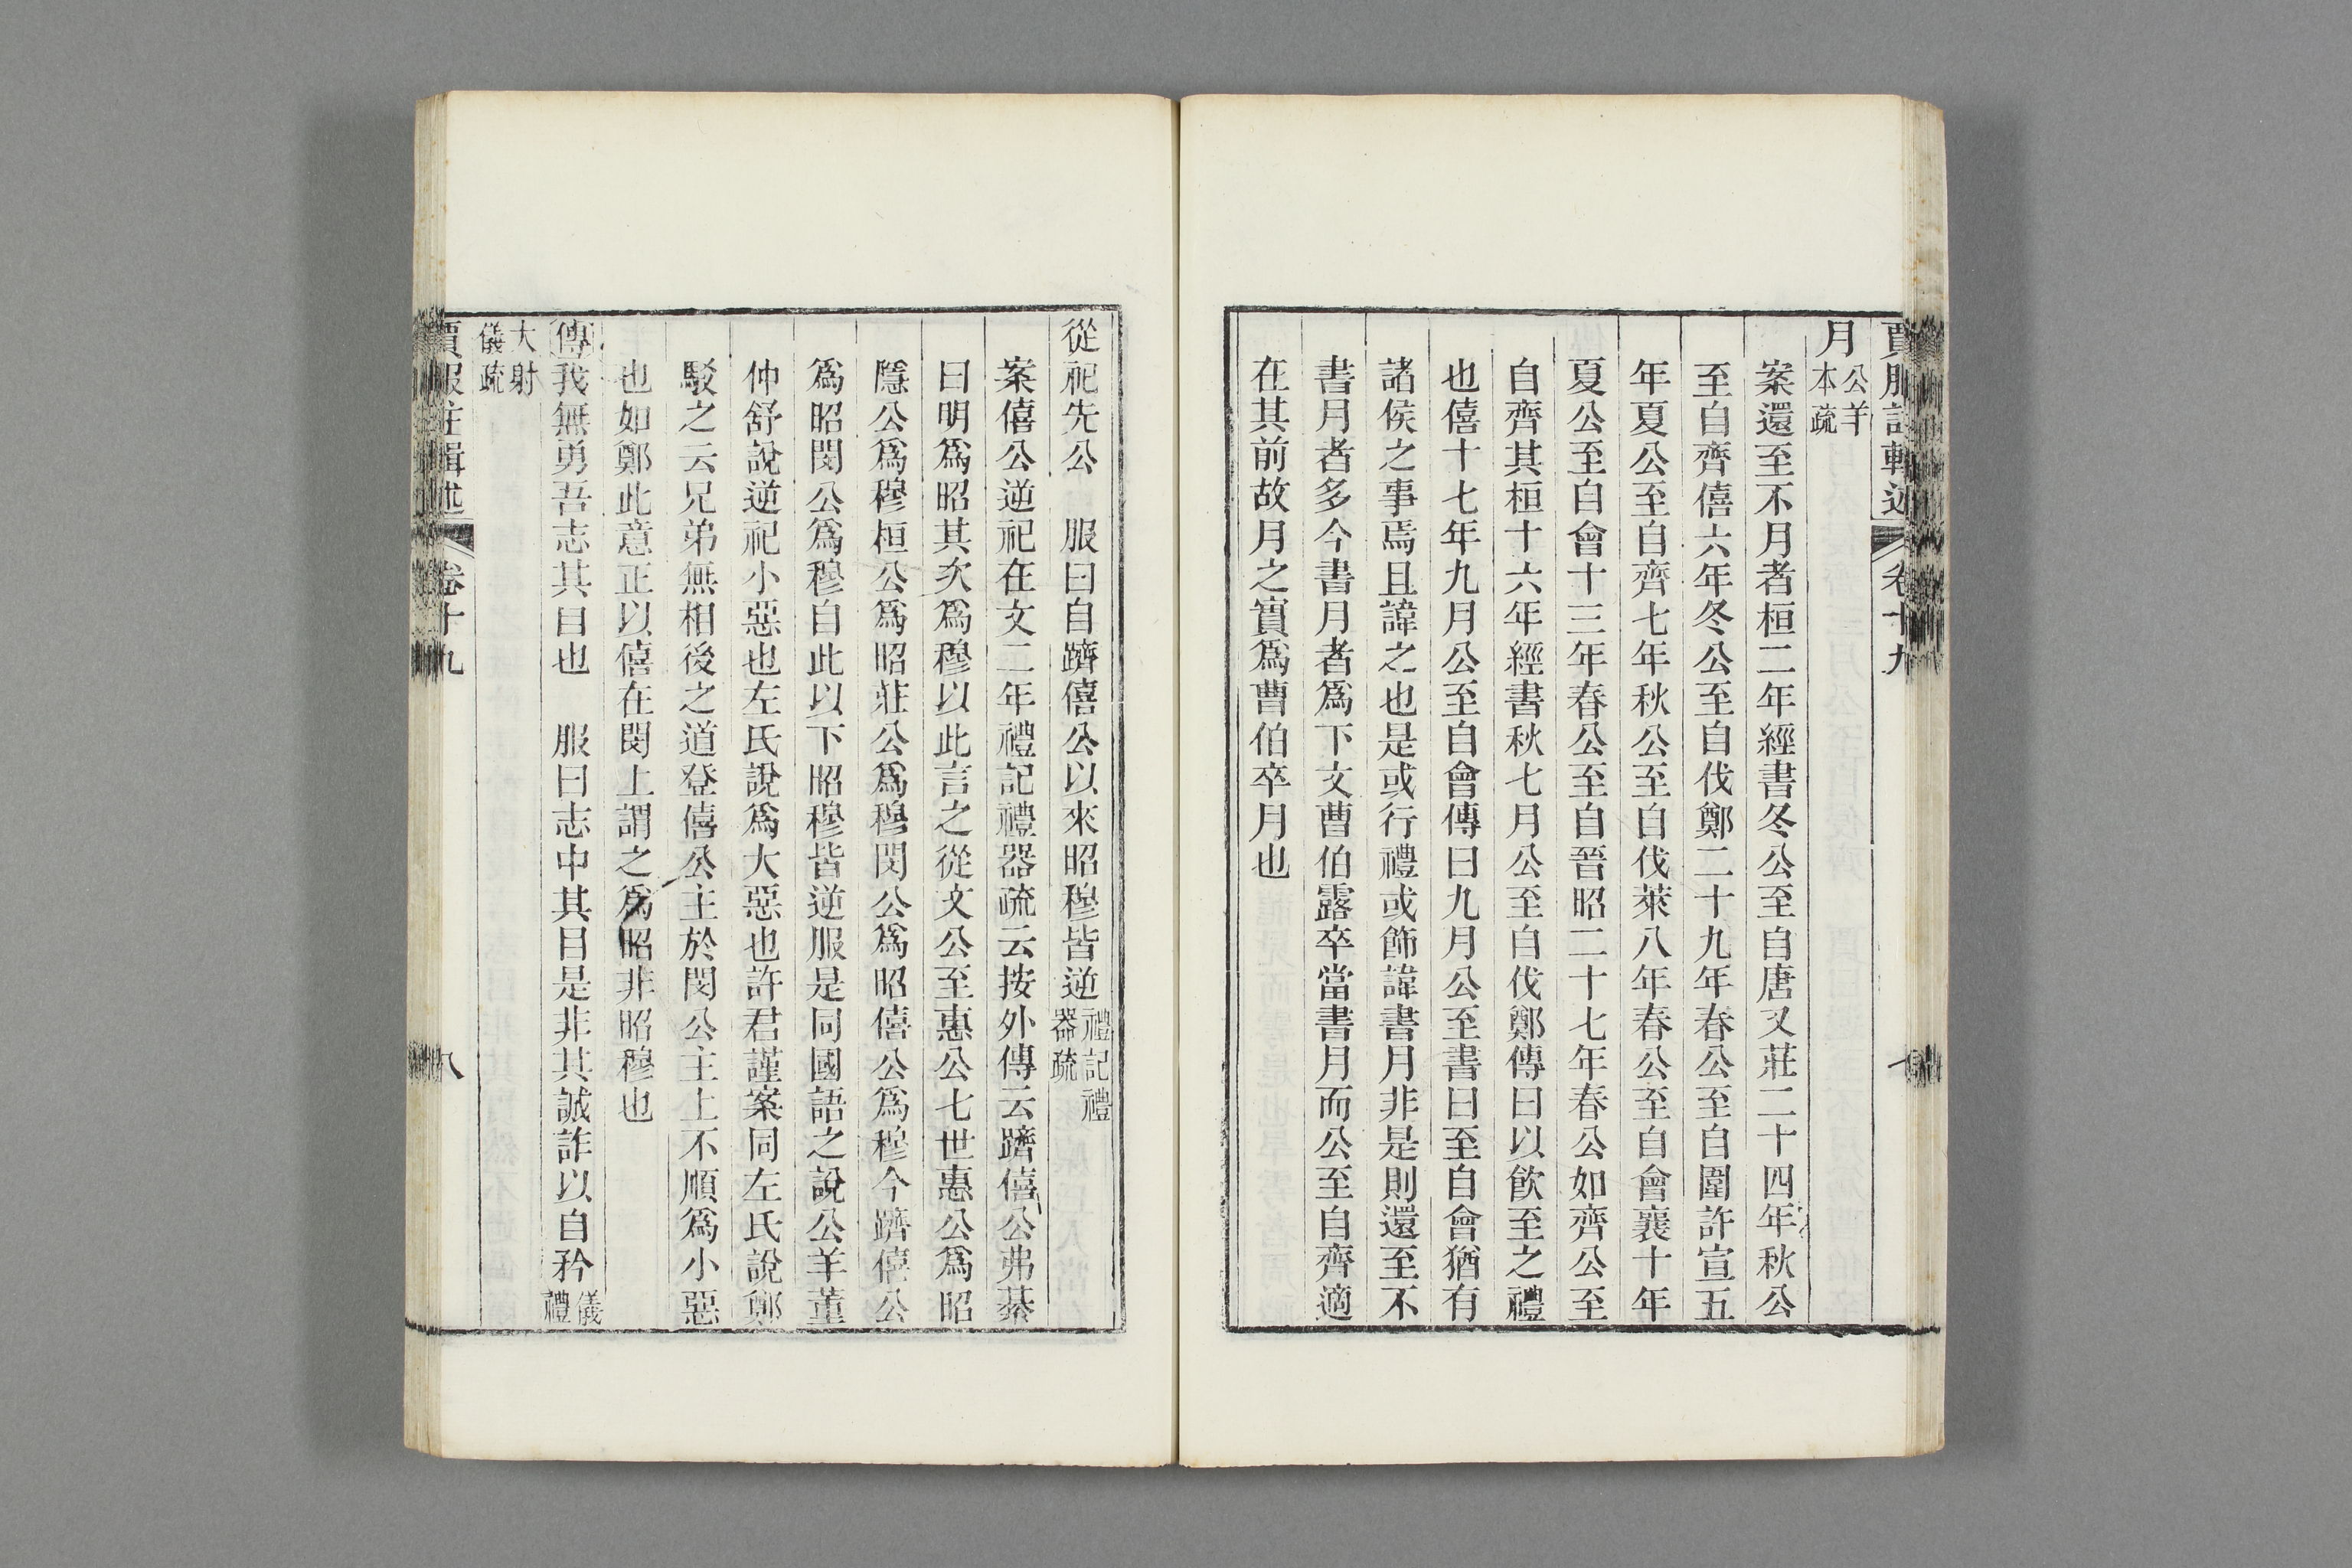 賈服註輯述 卷十九 七
月公羊本疏
案還至不月者桓二年經書冬公至自唐又莊二十四年秋公
至自齊僖六年冬公至自伐鄭二十九年春公至自圍許宣五
年夏公至自齊七年秋公至自伐萊八年春公至自會襄十年
夏公至自會十三年春公至自晉昭二十七年春公如齊公至
自齊其桓十六年經書秋七月公至自伐鄭傳曰以飲至之禮
也僖十七年九月公至自會傳曰九月公至書曰至自會猶有
諸侯之事焉且諱之也是或行禮或飾諱書月非是則還至不
書月者多今書月者爲下文曹伯露卒當書月而公至自齊適
在其前故月之實爲曹伯卒月也
從祀先公 服曰自躋僖公以來昭穆皆逆禮記禮器疏
案僖公逆祀在文二年禮記禮器疏云按外傳云躋僖公弗綦
曰明爲昭其次爲穆以此言之從文公至惠公七世惠公爲昭
隱公爲穆桓公爲昭莊公爲穆閔公爲昭僖公爲穆今躋僖公
爲昭閔公爲穆自此以下昭穆皆逆服是同國語之說公羊董
仲舒說逆祀小惡也左氏說爲大惡也許君謹案同左氏說鄭
駁之云兄弟無相後之道登僖公主於閔公主上不順爲小惡
也如鄭此意正以僖在閔上謂之爲昭非昭穆也
傳我無勇吾志其目也 服曰志中其目是非其誠詐以自矜儀禮
大射儀疏
賈服註輯述 卷十九 八